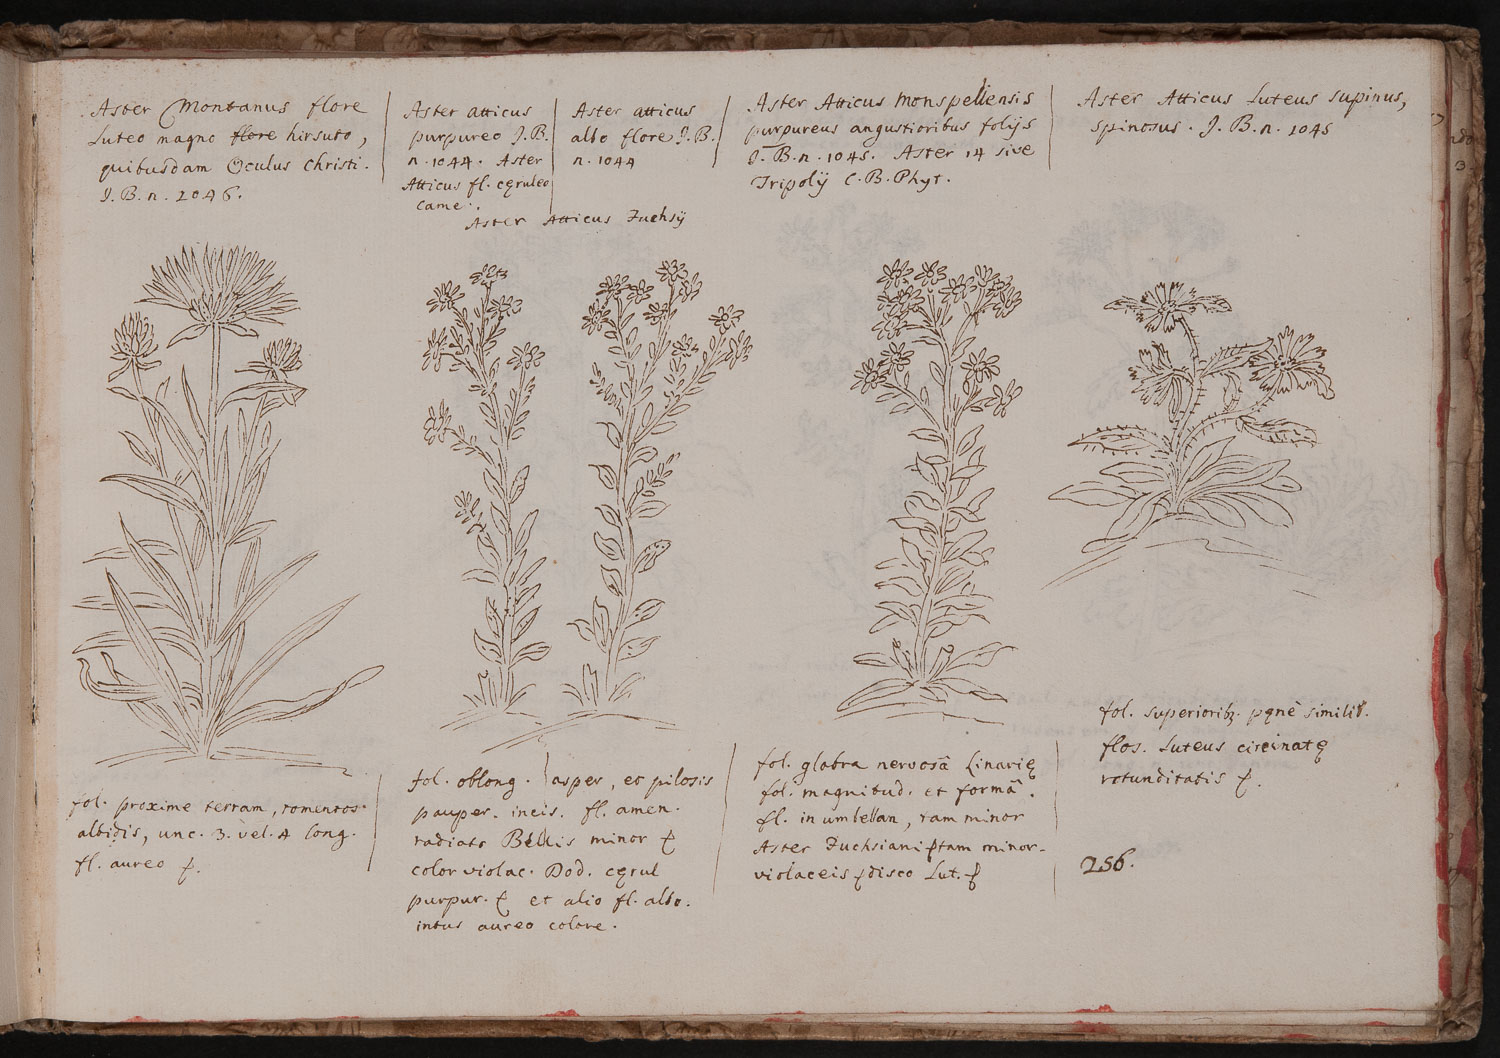 Aster Montanus flore
Luteo magno flore hirsuto,
quibusdam Oculus Christi.
J. B. n. 1046.
Aster atticus
purpureo J. B.
n. 1044. Aster
Atticus fl. cęruleo
came.
Aster atticus
albo flore J. B.
n. 1044
Aster Atticus Fuchsÿ
Aster Atticus Monspeliensis
purpureus angustioribus folijs
J. B. n. 1045. Aster 14 sive
Tripolÿ C. B. Phyt.
Aster Atticus Luteus supinus,
spinosus. J. B. n. 1045
fol. proxime terram, tomentos.
albidis, unc. 3. vel. 4 long.
fl. aureo
fol. oblong. asper, et pilosis
pauper. incis. fl. amen.
radiato Bellis minor
color violac. Dod. cęrul
purpur. et alio fl. albo.
intus aureo colore.
fol. glabra nervosâ Linarię
fol. magnitud. et formâ.
fl. in umbellan, tam minor
Aster Fuchsiani tam minor.
violaceis disco Lut.
fol. superiorib. pęnè simili.
flos. Luteus circinatę
rotunditatis
256.